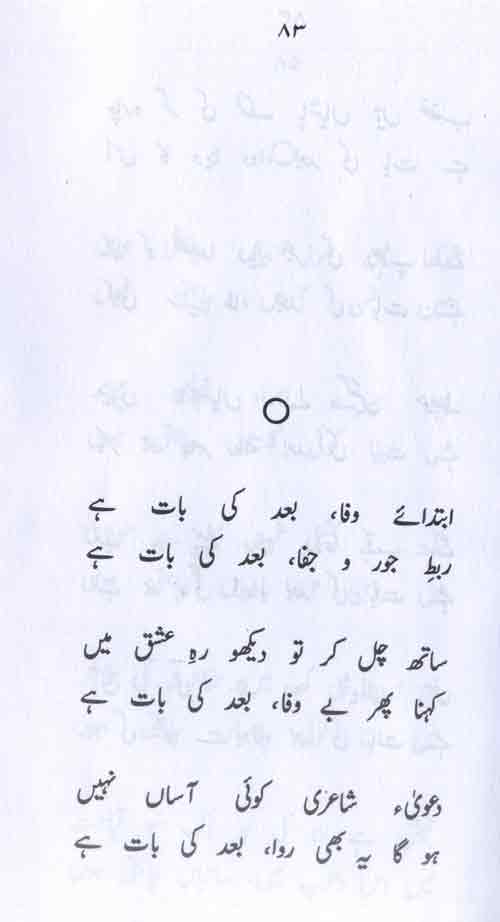 ۸۳
ابتدائے وفا، بعد کی بات ہے
ربطِ جور و جفا، بعد کی بات ہے
ساتھ چل کر تو دیکھو رہِ عشق میں
کہنا پھر بے وفا، بعد کی بات ہے
دعویٰء شاعری کوئی آساں نہیں
ہو گا یہ بھی روا، بعد کی بات ہے